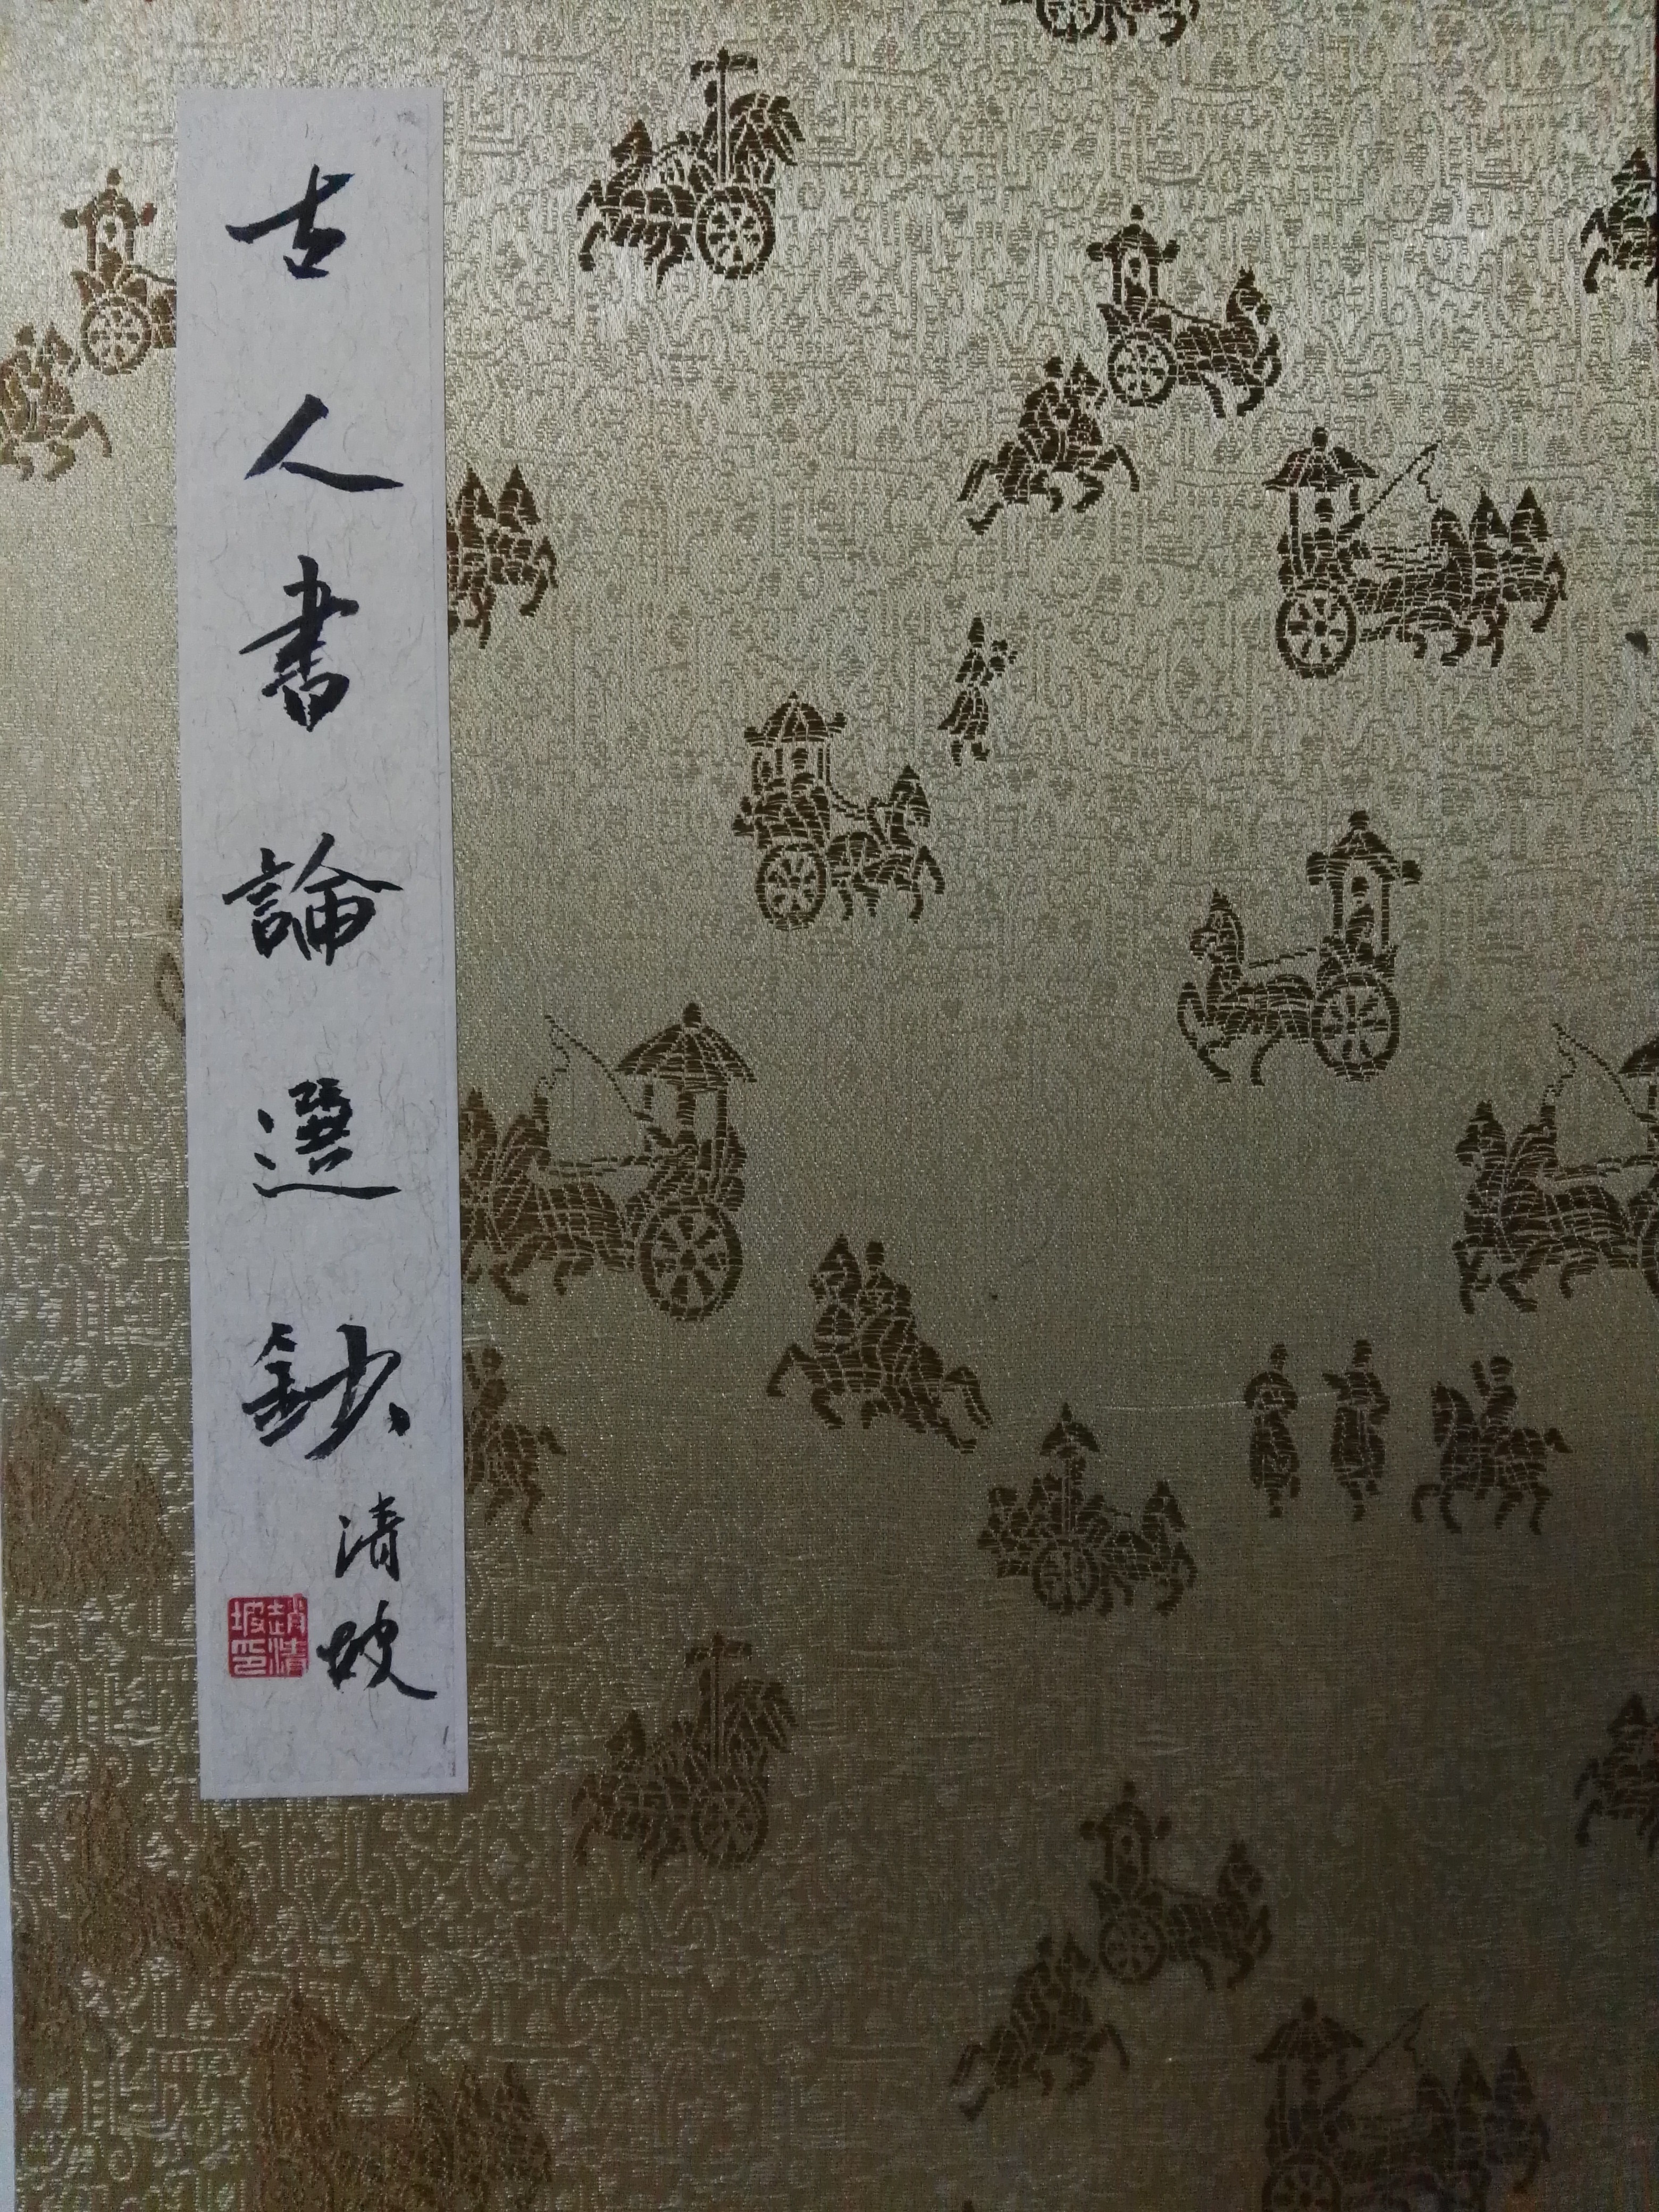 古人書論選鈔
清坡
趙清坡印